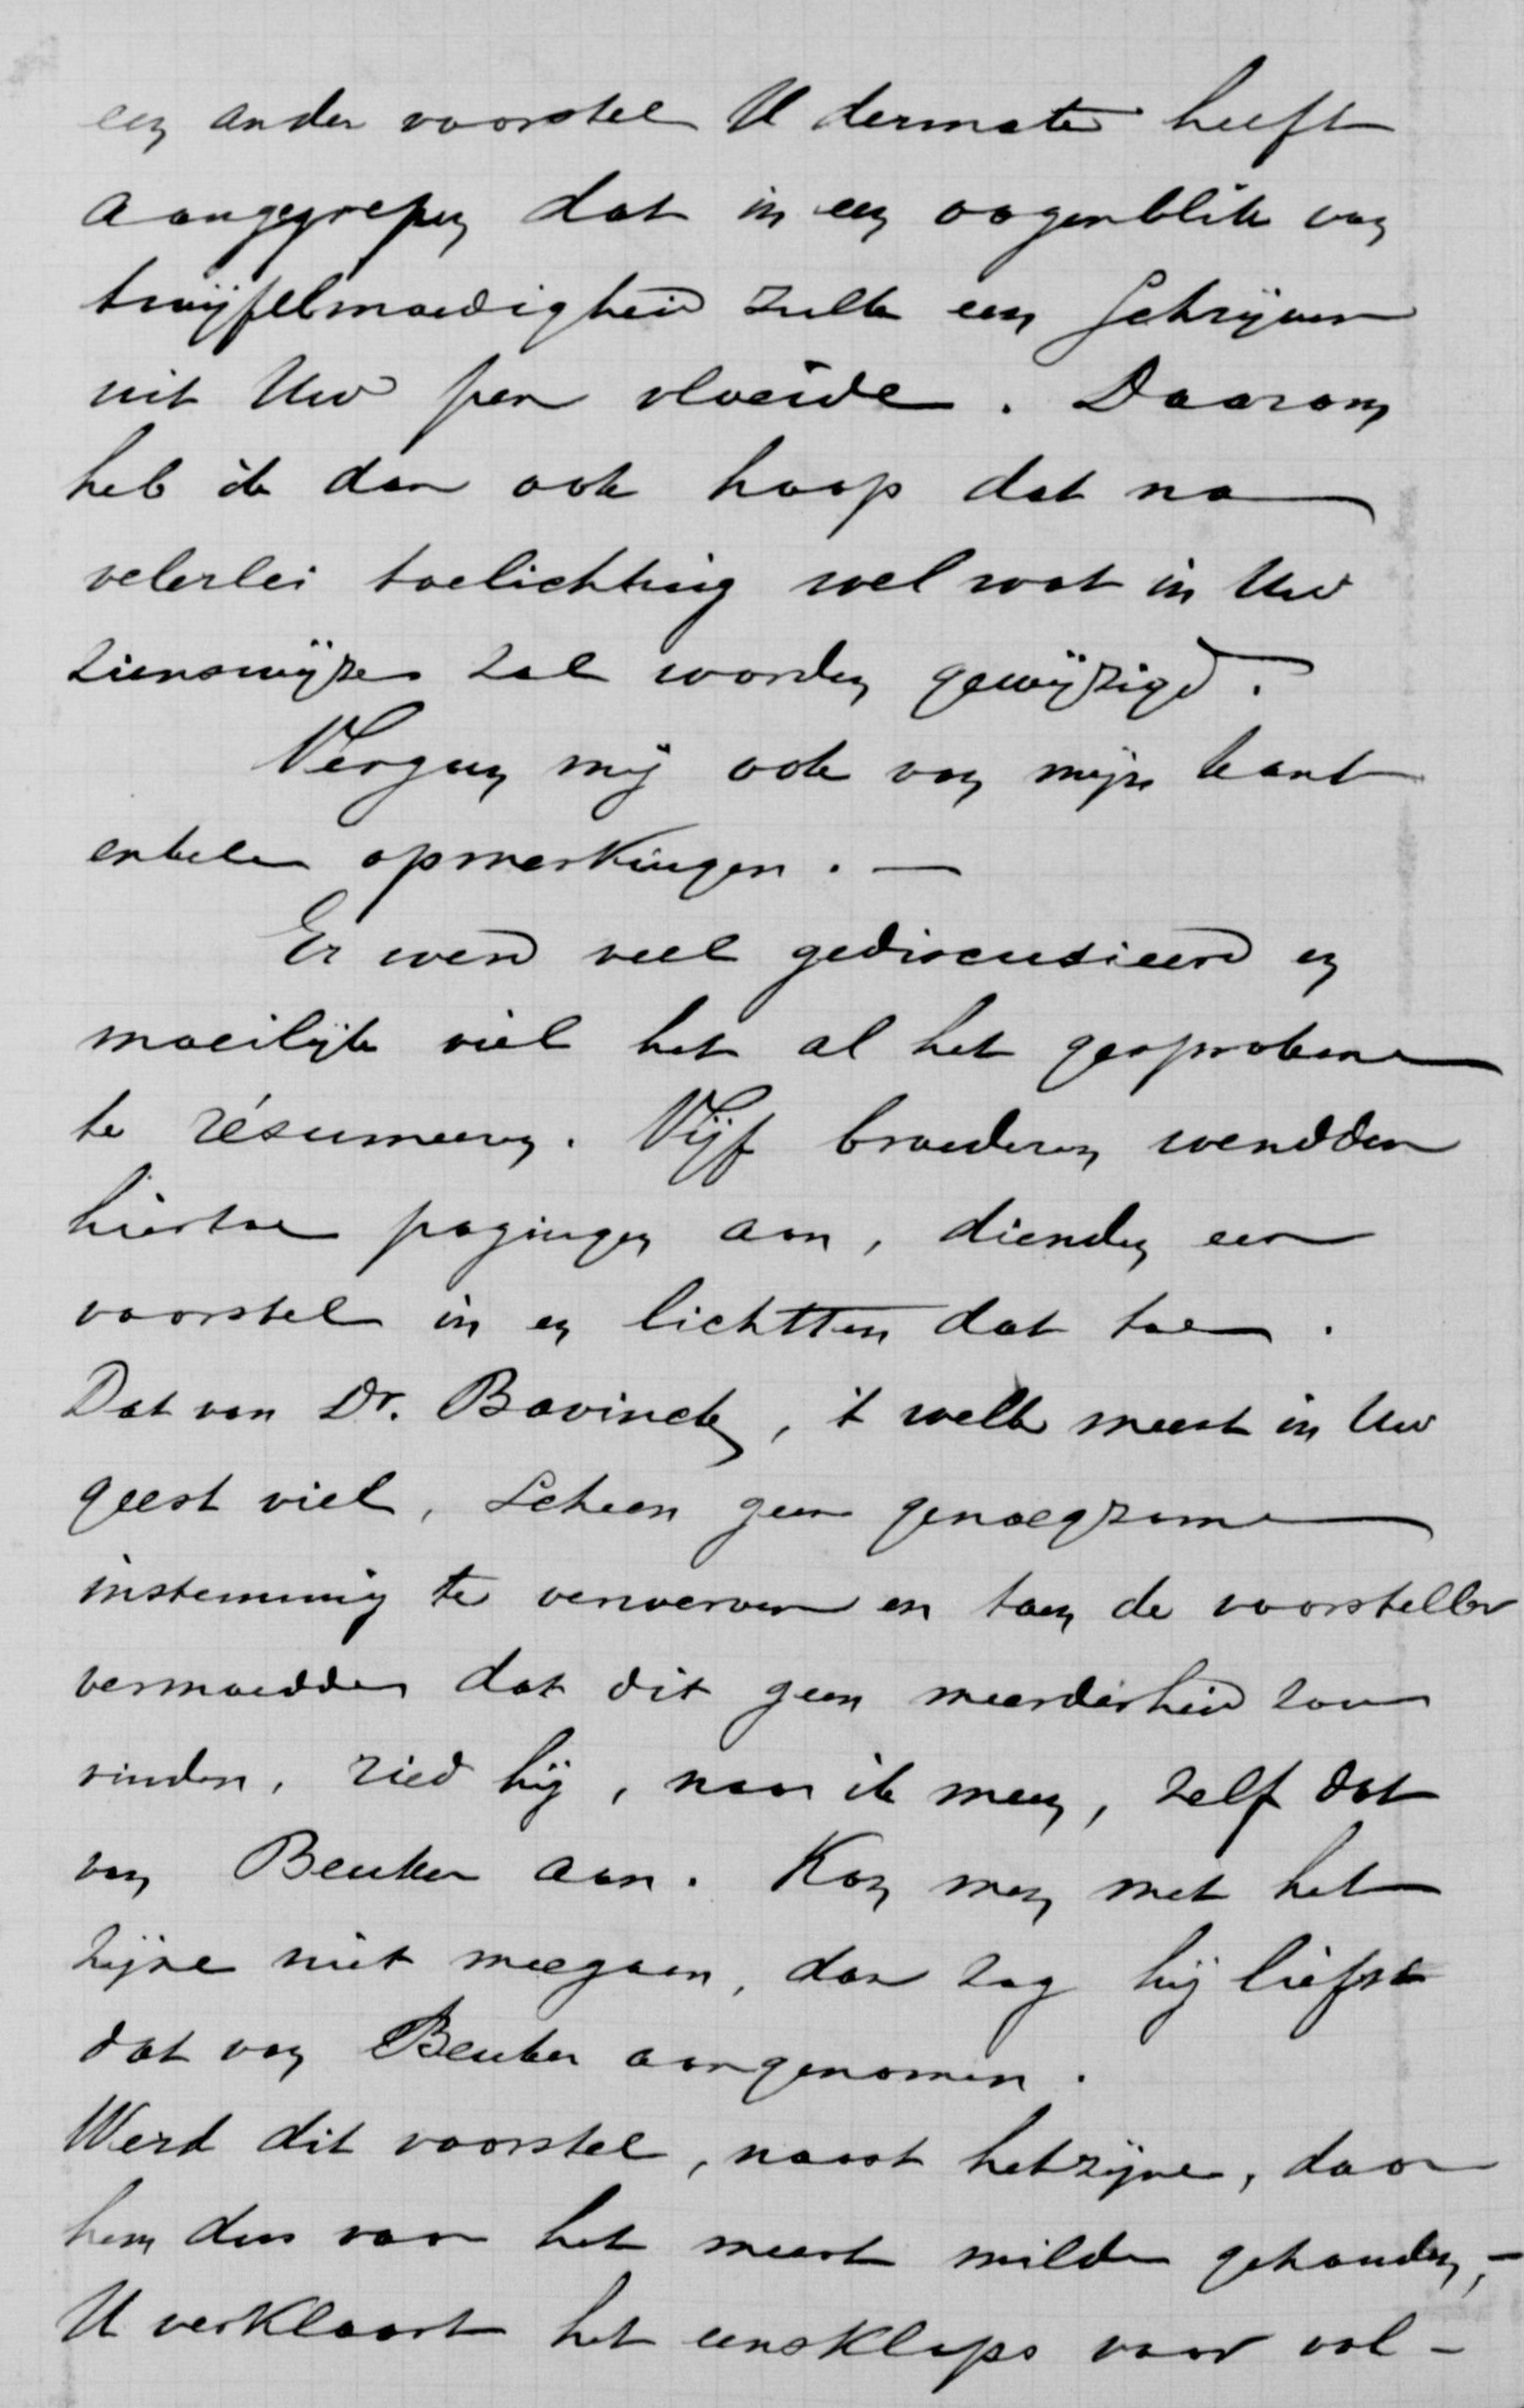 een ander voorstel U dermate heeft
aangegrepen dat in een oogenblik van
twijfelmoedigheid zulk een schrijven
uit Uw pen vloeide. Daarom
heb ik dan ook hoop dat na
velerlei toelichting wel wat in Uw
zienswijze zal worden gewijzigd.
Vergun mij ook van mijn kant
enkele opmerkingen. —
Er werd veel gediscusieerd en
moeilijk viel het al het gesprokene
te résumeeren. Vijf broederen wendden
hiertoe pogingen aan, dienden een
voorstel in en lichtten dat toe.
Dat van Dr. Bavinck, 't welk meest in Uw
geest viel, scheen geen genoegzame
instemming te verwerven en toen de voorsteller
vermoedde dat dit geen meerderheid zou
vinden, ried hij, naar ik meen, zelf dat
van Beuker aan. Kon men met het
zijne niet meegaan, dan zag hij liefst
dat van Beuker aangenomen.
Werd dit voorstel, naast het zijne, door
hem dus voor het meest milde gehouden, –
U verklaart het eensklaps voor vol-